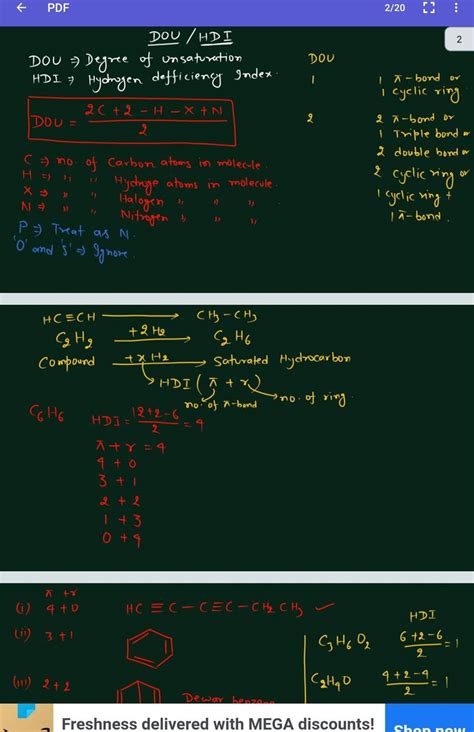 PDF
2/20
2
DOU / HDI
DOU ⇒ Degree of unsaturation
HDI ⇒ Hydrogen defficiency Index.
DOU = (2C + 2 - H - X + N) / 2
C ⇒ no. of Carbon atoms in molecule.
H ⇒ " " Hydroge atoms in molecule.
X ⇒ " " Halogen " " "
N ⇒ " " Nitrogen " " "
P ⇒ Treat as N.
'O' and 'S' ⇒ Ignore.
DOU
1 1 π-bond or
1 cyclic ring.
2 2 π-bond or
1 Triple bond or
2 double bond or
2 cyclic ring or
1 cyclic ring +
1 π-bond.
HC≡CH → CH3-CH3
C2H2 +2H2 → C2H6
Compound +xH2 → Saturated Hydrocarbon
HDI (π + r)
no. of π-bond no. of ring.
C6H6 HDI = (12+2-6) / 2 = 4
π + r = 4
4 + 0
3 + 1
2 + 2
1 + 3
0 + 4
π + r
(i) 4 + 0 HC≡C-C≡C-CH2CH3 ✓
(ii) 3 + 1
(iii) 2 + 2 Dewar benzene
HDI
C3H6O2 (6+2-6) / 2 = 1
C2H4O (4+2-4) / 2 = 1
Freshness delivered with MEGA discounts!
Shop now